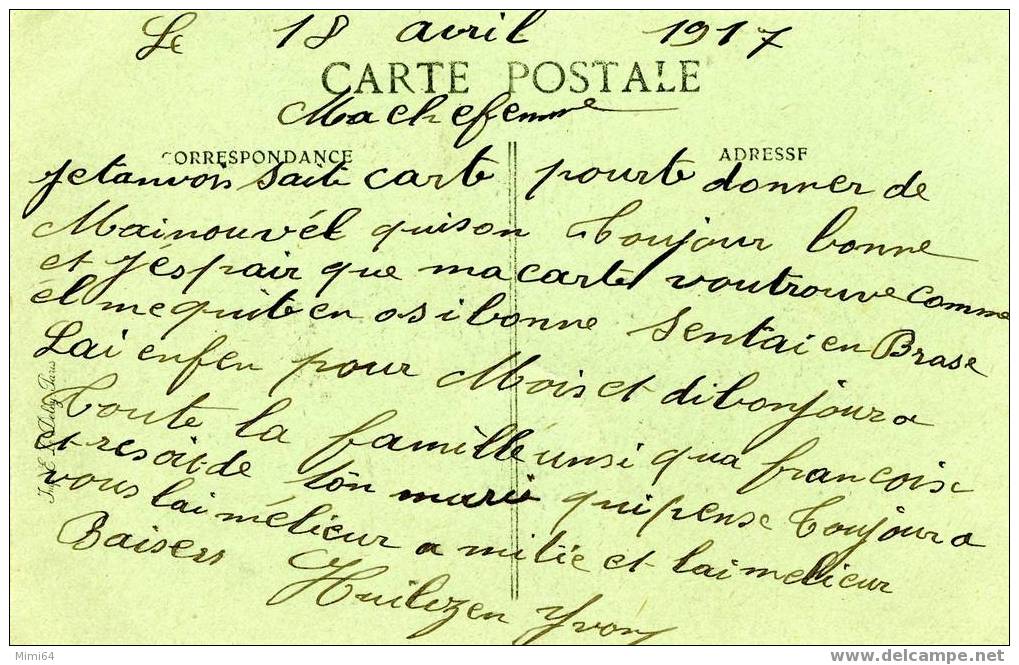 Le 18 avril 1917
CARTE POSTALE
Ma chefemme
CORRESPONDANCE
ADRESSE
Jetanvois saite carte pourte donner de
Mainouvél quison Toujour bonne
et Jéspair que ma carte voutrouve comme
él mequite en osi bonne Sentai en Brase
Lai enfen pour Mois et dibonjour a
Toute la famille unsi qua francoise
et resoit de ton marie qui pense Toujour a
vous lai mélieur a mitïe et lai melieur
Baisers
Yvon
Imp. E. Le Deley, Paris
Mimi64
www.delcampe.net